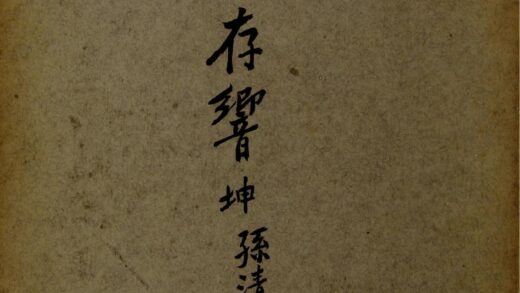 存響坤孫清